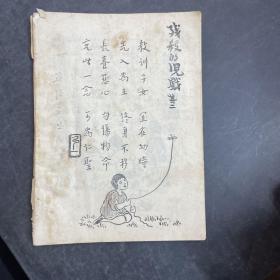 残殺的兒戲
教訓子女 宜在幼時
先入為主 終身不移
長養慈心 勿傷物命
充此一念 可為仁聖